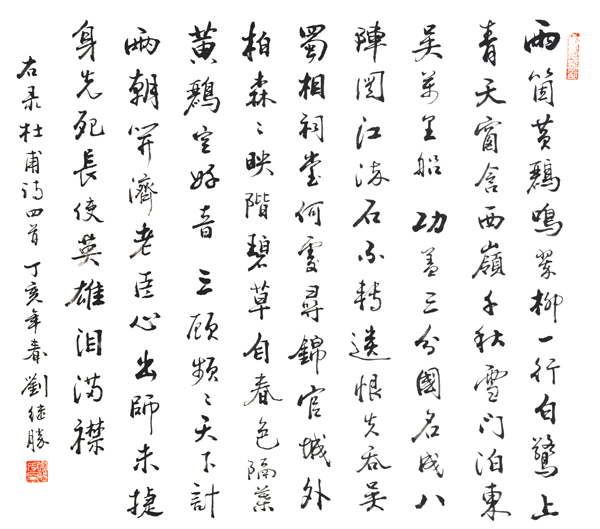 兩箇黄鸝鳴翠柳一行白鷺上
青天窗含西嶺千秋雪门泊東
吴萬里船 功蓋三分國名成八
陣图江流石不轉遺恨失吞吴
蜀相祠堂何處尋錦官城外
柏森〻映階碧草自春色隔葉
黄鸝空好音 三顾频〻天下計
兩朝開濟老臣心出師未捷
身先死長使英雄泪满襟
右录杜甫诗四首 丁亥年春 劉继勝